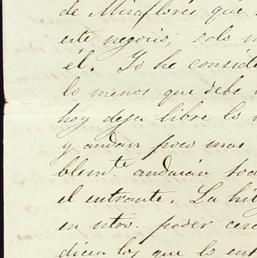 de Miraflores que
este negocio; solo
él. Yo he conside
lo menos que debe
hoy deja libre lo
y andan poco mas
blemte. andarán
el entrante. La
en ntro. poder
dicen los que lo